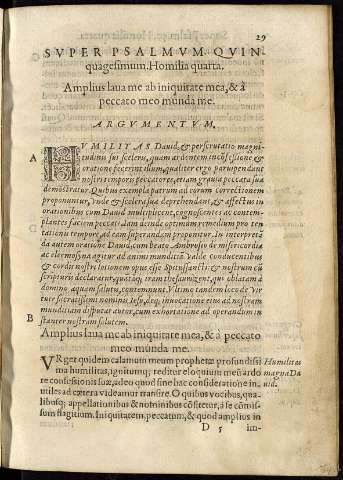 29
SVPER PSALMVM QVIN
quagesimum. Homilia quarta.
Amplius laua me ab iniquitate mea, & à
peccato meo munda me.
ARGVMENTVM.
A
HVMILITAS Dauid, & perscrutatio magni
tudinis sui sceleris, quam ardentem in cōfessione &
oratione fecerit illum, qualiter ergo paruipendant
nostri temporis peccatores, etiam grauia peccata sua
demōstratur. Quibus exempla patrum ad eorum correctionem
proponuntur, vnde & scelera sua deprehendant, & affectus in
orationibus cum Dauid multiplicent, cognoscentes ac contem-
plantes faciem peccati. Iam deinde optimum remedium pro ten
tationis tempore, ad eam superandam proponitur. In interpretā
da autem oratione Dauid, cum beato Ambrosio de misericordia
ac eleemosyna agitur ad animi munditiā valde conducentibus
& cordis nostri lotionem opus esse Spiritussancti: & nostrum
scripturis declaratur,
aquam salutis, contemnunt. Vltimo tandem loco de vir
tute sacratissimi nominis Iesu, deque inuocatione eius ad nostram
munditiam disputat autor, cum exhortatione ad operandum in
B
stanter nostram salutem.
Amplius laua me ab iniquitate mea, & à peccato
meo munda me.
VRget quidem calamum meum prophetæ profundissi
Humilitas
ma humilitas, ignitumque reddit eloquium meū ardo
magna Da
re confessionis suæ, adeo quod sine hac consideratione in-
uid.
utiles ad cætera videamur transire. O quibus vocibus, qua-
libusque appellationibus & nominibus cōfitetur, à se cōmis-
sum flagitium. Iniquitatem, peccatum, & quod amplius in
D 5
im-